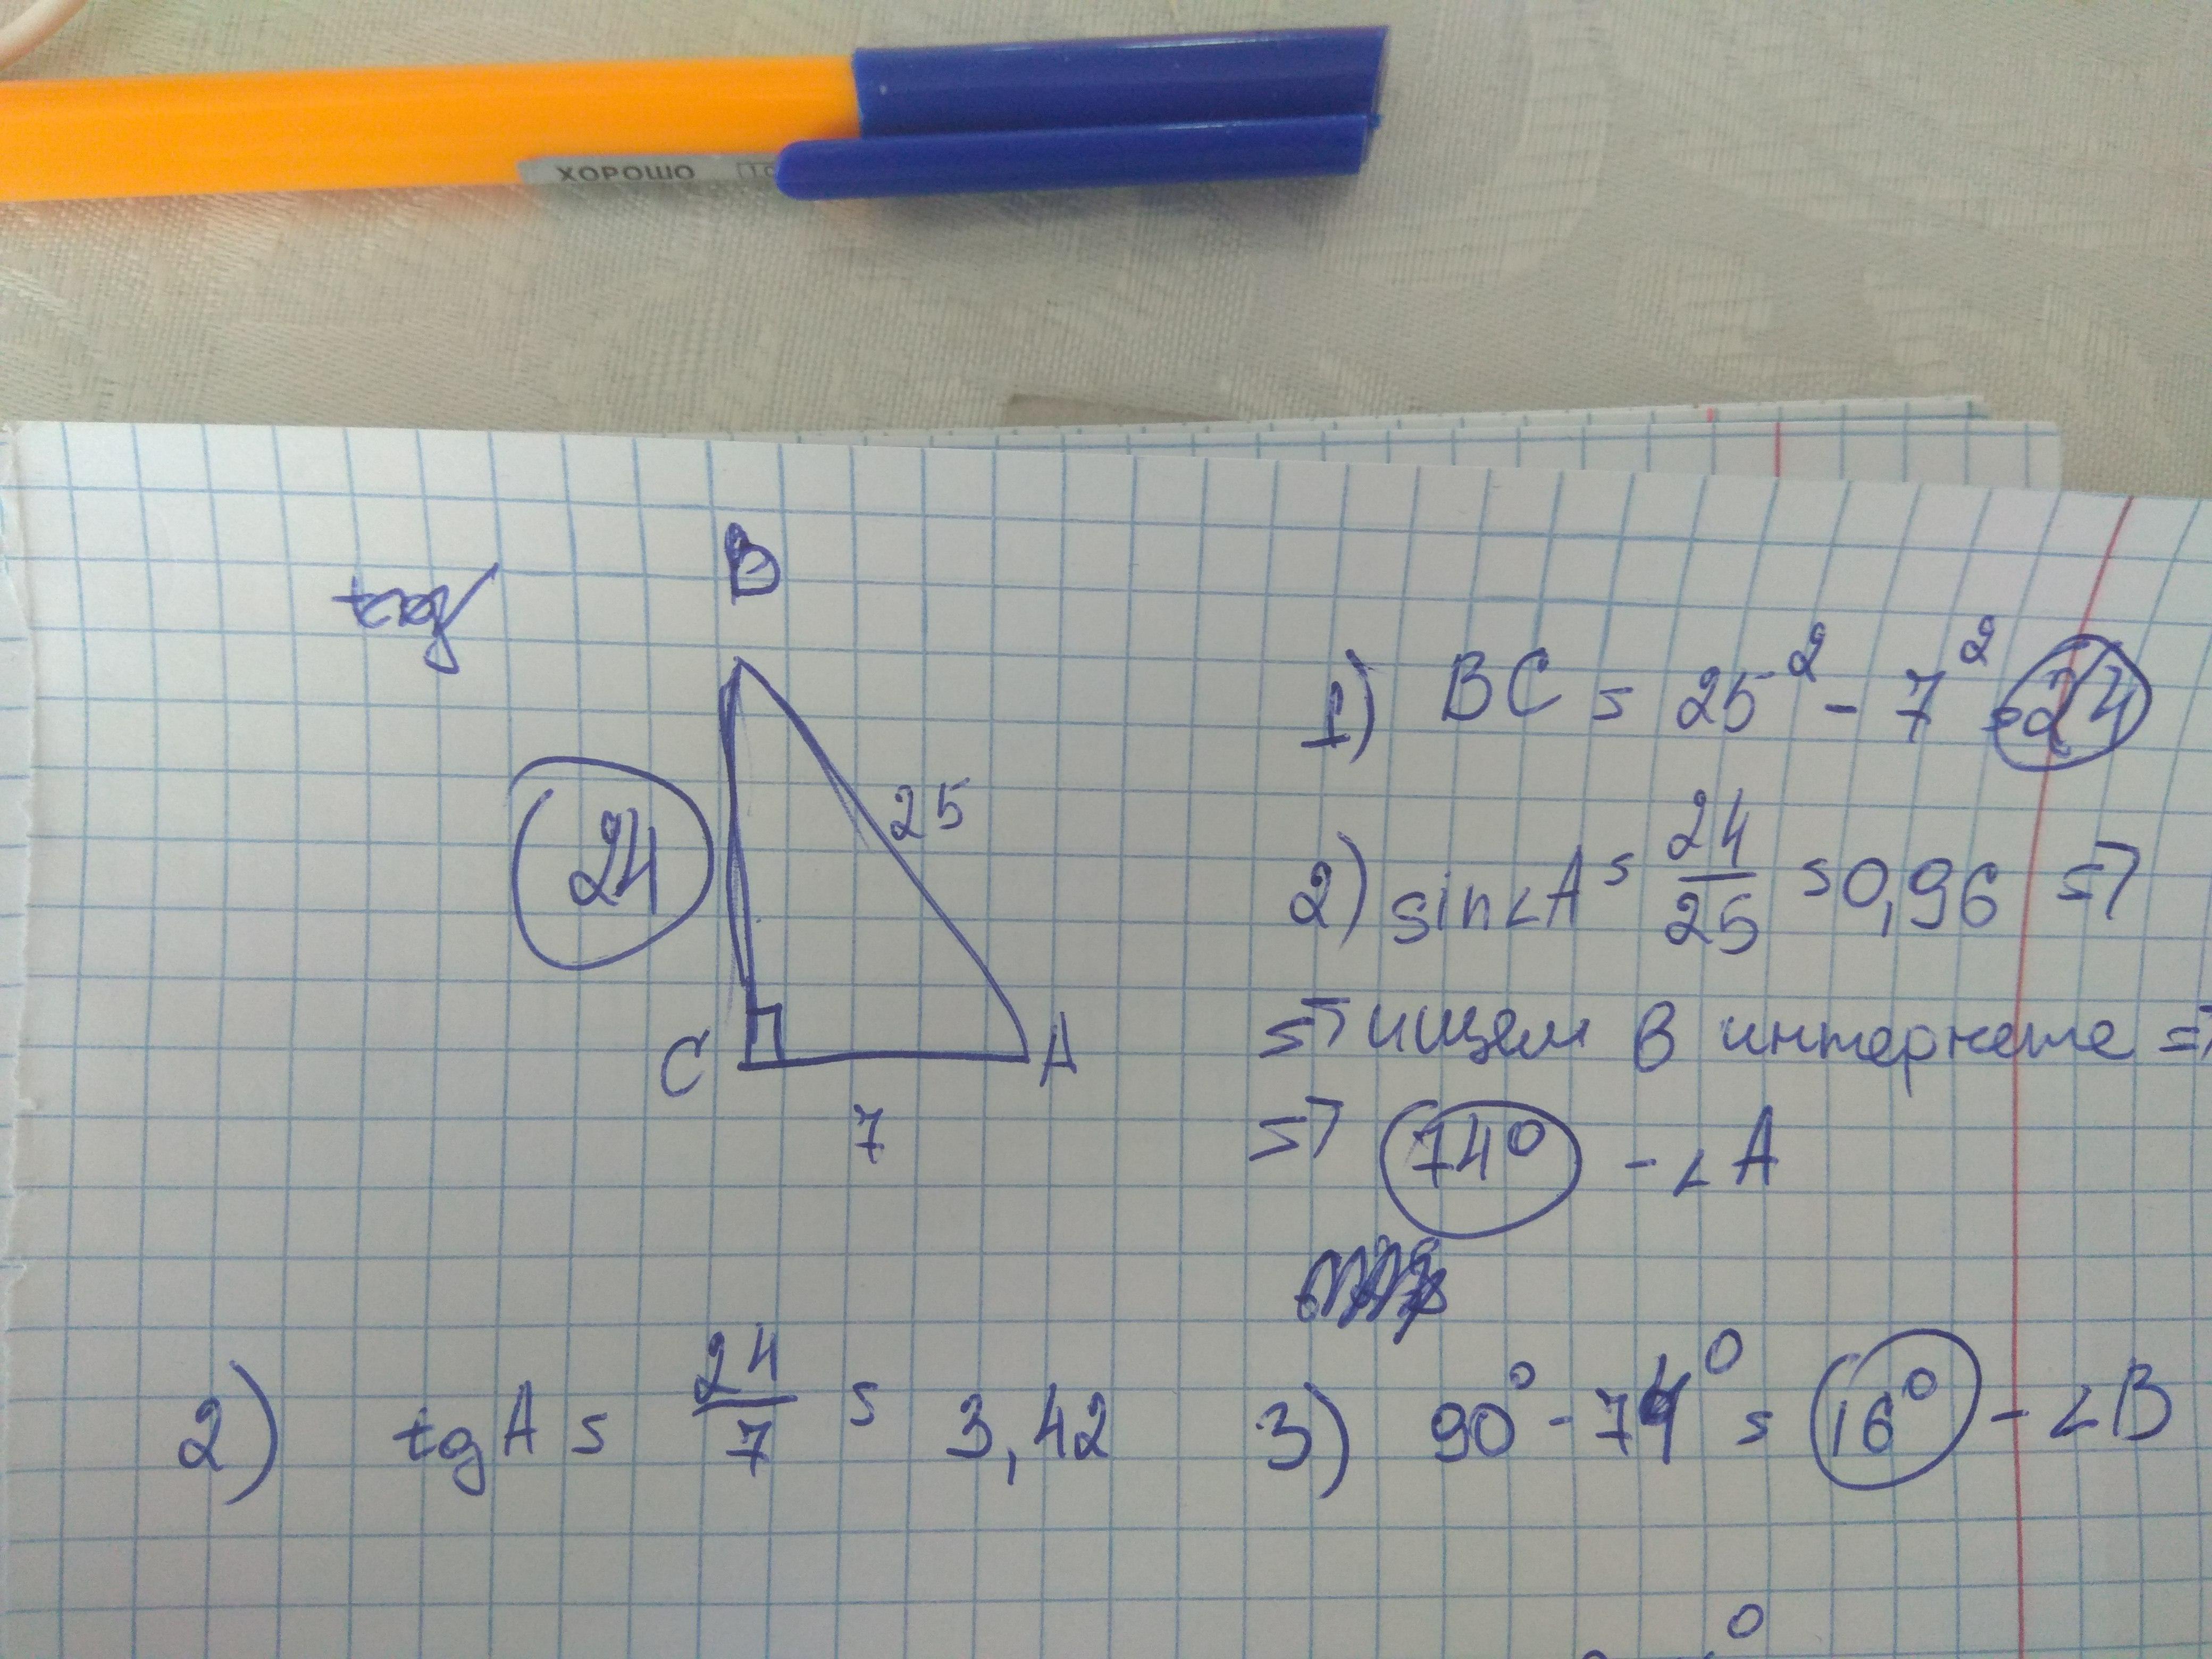 ХОРОШО
B
24
25
C
A
7
1) BC = 25² - 7² = 24
2) sin∠A = 24/25 = 0,96 =>
=> ищем в интернете =>
=> 74° - ∠A
2) tg A = 24/7 = 3,42
3) 90° - 74° = 16° - ∠B